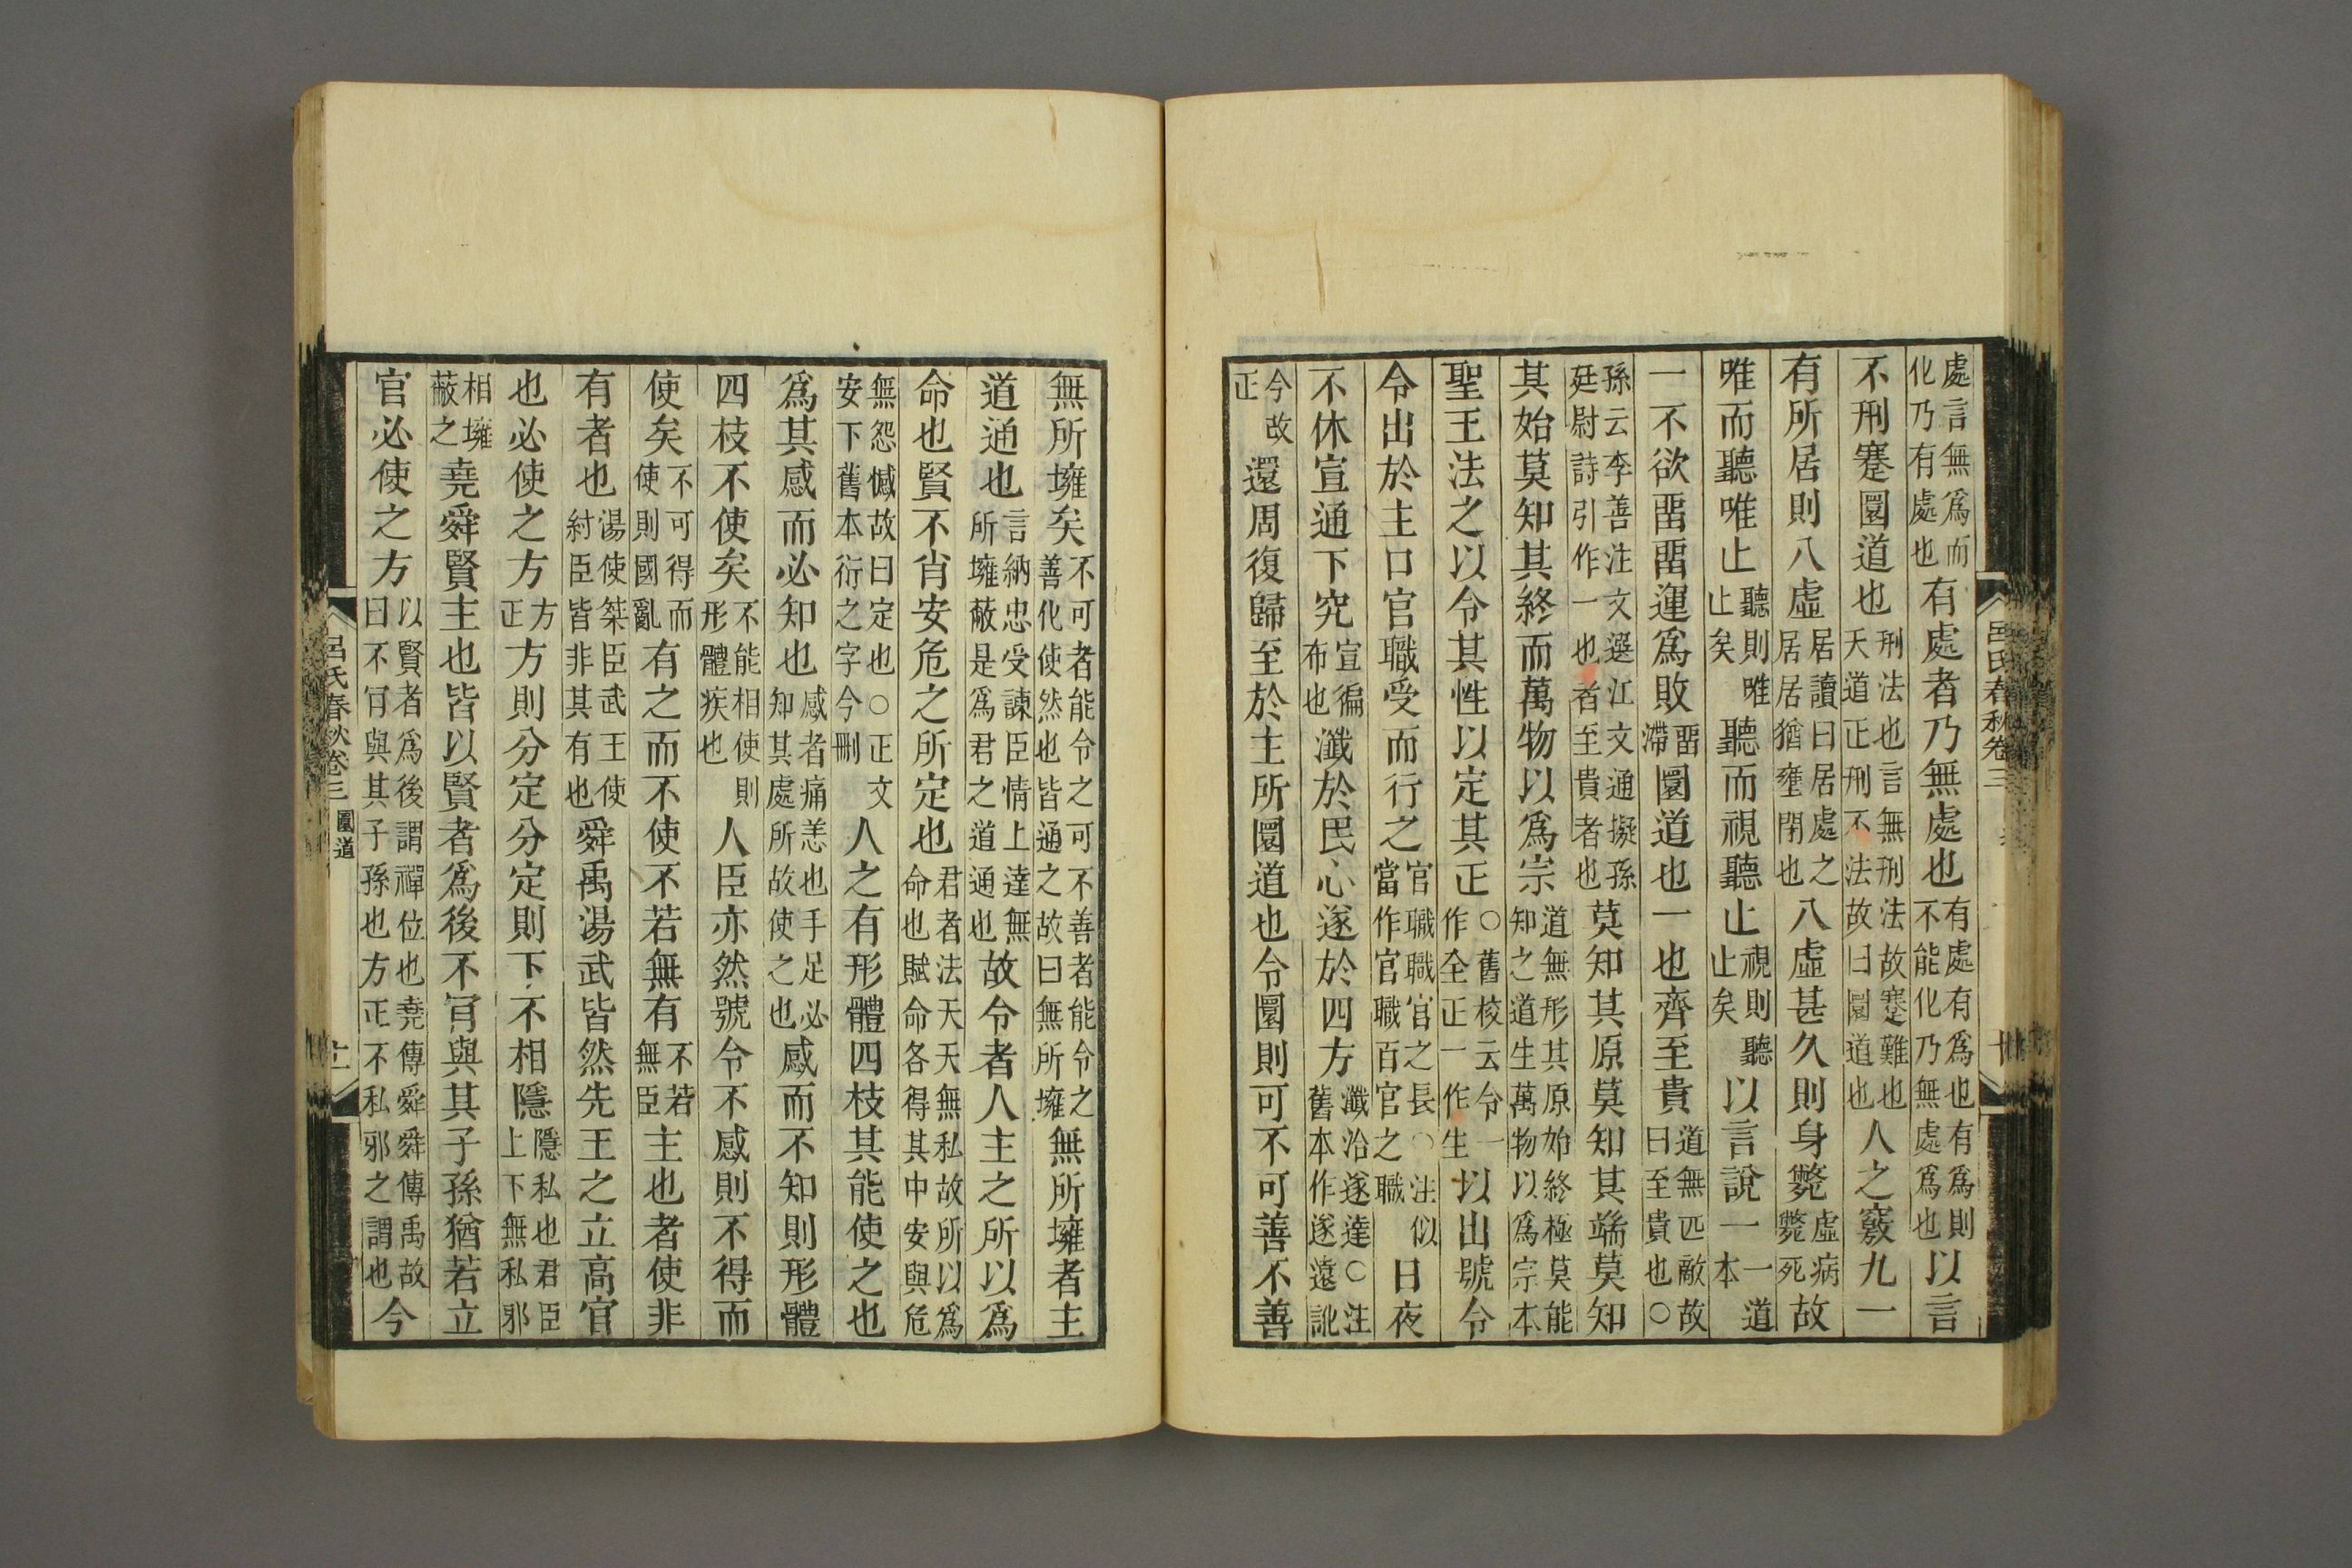 處言無爲而化乃有處也有處者乃無處也有處有爲也有爲則不能化乃無處爲也以言
不刑蹇圜道也刑法也言無刑法故蹇難也天道正刑不法故曰圜道也人之竅九一
有所居則八虛居讀曰居處之居居猶壅閉也八虛甚久則身斃虛病斃死故
唯而聽唯止聽則唯止矣聽而視聽止視則聽止矣以言說一一道本
一不欲畱畱運爲敗畱滯圜道也一也齊至貴道無匹敵故曰至貴也○
孫云李善注文選江文通擬孫廷尉詩引作一也者至貴者也莫知其原莫知其端莫知
其始莫知其終而萬物以爲宗道無形其原始終極莫能知之道生萬物以爲宗本
聖王法之以令其性以定其正○舊校云令一作全正一作生以出號令
令出於主口官職受而行之官職職官之長○注似當作官職百官之職日夜
不休宣通下究宣徧布也瀸於民心遂於四方瀸洽遂達○注舊本作遂遠訛
今故正還周復歸至於主所圜道也令圜則可不可善不善
呂氏春秋卷三
無所壅矣不可者能令之可不善者能令之善化使然也皆通之故曰無所壅無所壅者主
道通也言納忠受諫臣情上達無所壅蔽是爲君之道通也故令者人主之所以爲
命也賢不肖安危之所定也君者法天天無私故所以爲命也賦命各得其中安與危
無怨憾故曰定也○正文安下舊本衍之字今刪人之有形體四枝其能使之也
爲其感而必知也感者痛恙也手足必知其處所故使之也感而不知則形體
四枝不使矣不能相使則形體疾也人臣亦然號令不感則不得而
使矣不可得而使則國亂有之而不使不若無有不若無臣主也者使非
有者也湯使桀臣武王使紂臣皆非其有也舜禹湯武皆然先王之立高官
也必使之方方正方則分定分定則下不相隱隱私也君臣上下無私邪
相壅蔽之堯舜賢主也皆以賢者爲後不肎與其子孫猶若立
官必使之方以賢者爲後謂禪位也堯傳舜舜傳禹故曰不肎與其子孫也方正不私邪之謂也今
呂氏春秋卷三 圜道